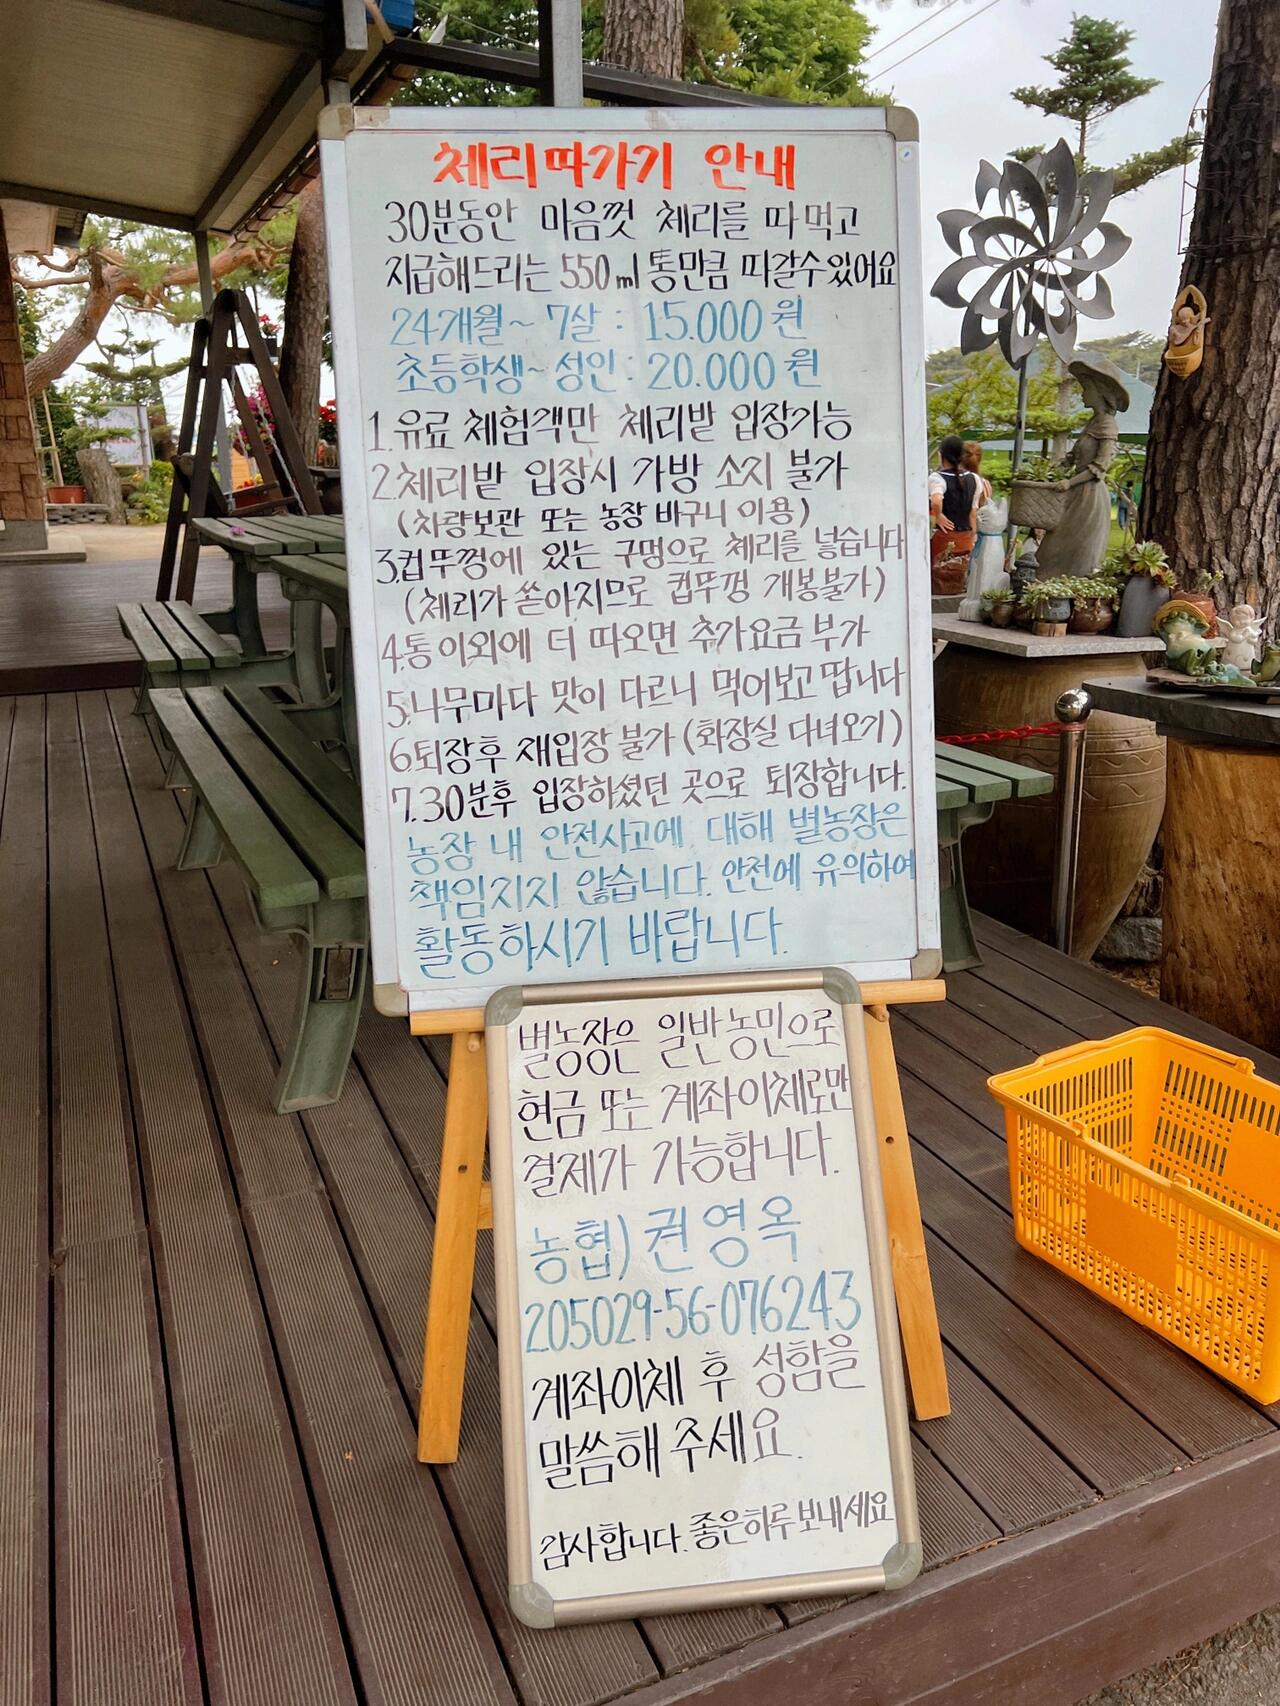 체리따가기 안내
30분동안 마음껏 체리를 따 먹고
지급해드리는 550ml 통만큼 따갈수있어요
24개월~ 7살 : 15.000원
초등학생~성인 : 20.000원
1.유료 체험객만 체리밭 입장가능
2.체리밭 입장시 가방 소지 불가
(차량보관 또는 농장 바구니 이용)
3.컵뚜껑에 있는 구멍으로 체리를 넣습니다
(체리가 쏟아지므로 컵뚜껑 개봉불가)
4.통 이외에 더 따오면 추가요금 부가
5.나무마다 맛이 다르니 먹어보고 땁니다
6퇴장후 재입장 불가 (화장실 다녀오기)
7.30분후 입장하셨던 곳으로 퇴장합니다.
농장 내 안전사고에 대해 별농장은
책임지지 않습니다. 안전에 유의하여
활동하시기 바랍니다.
별농장은 일반농민으로
현금 또는 계좌이체로만
결제가 가능합니다.
농협) 권영옥
205029-56-076243
계좌이체 후 성함을
말씀해 주세요.
감사합니다. 좋은하루보내세요